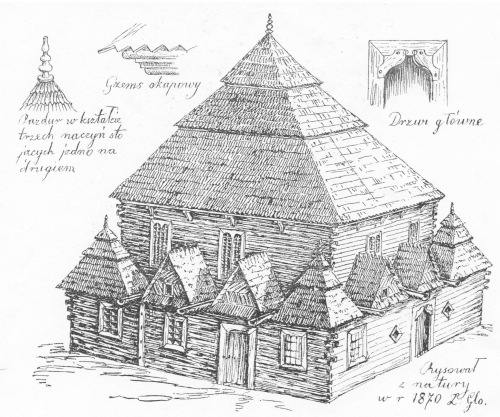 Pazdur w kształcie
trzech naczyń sto
jących jedno na
drugiem
Gzems okapowy
Drzwi główne
Rysował
z natury
w r 1870 Z Glo.